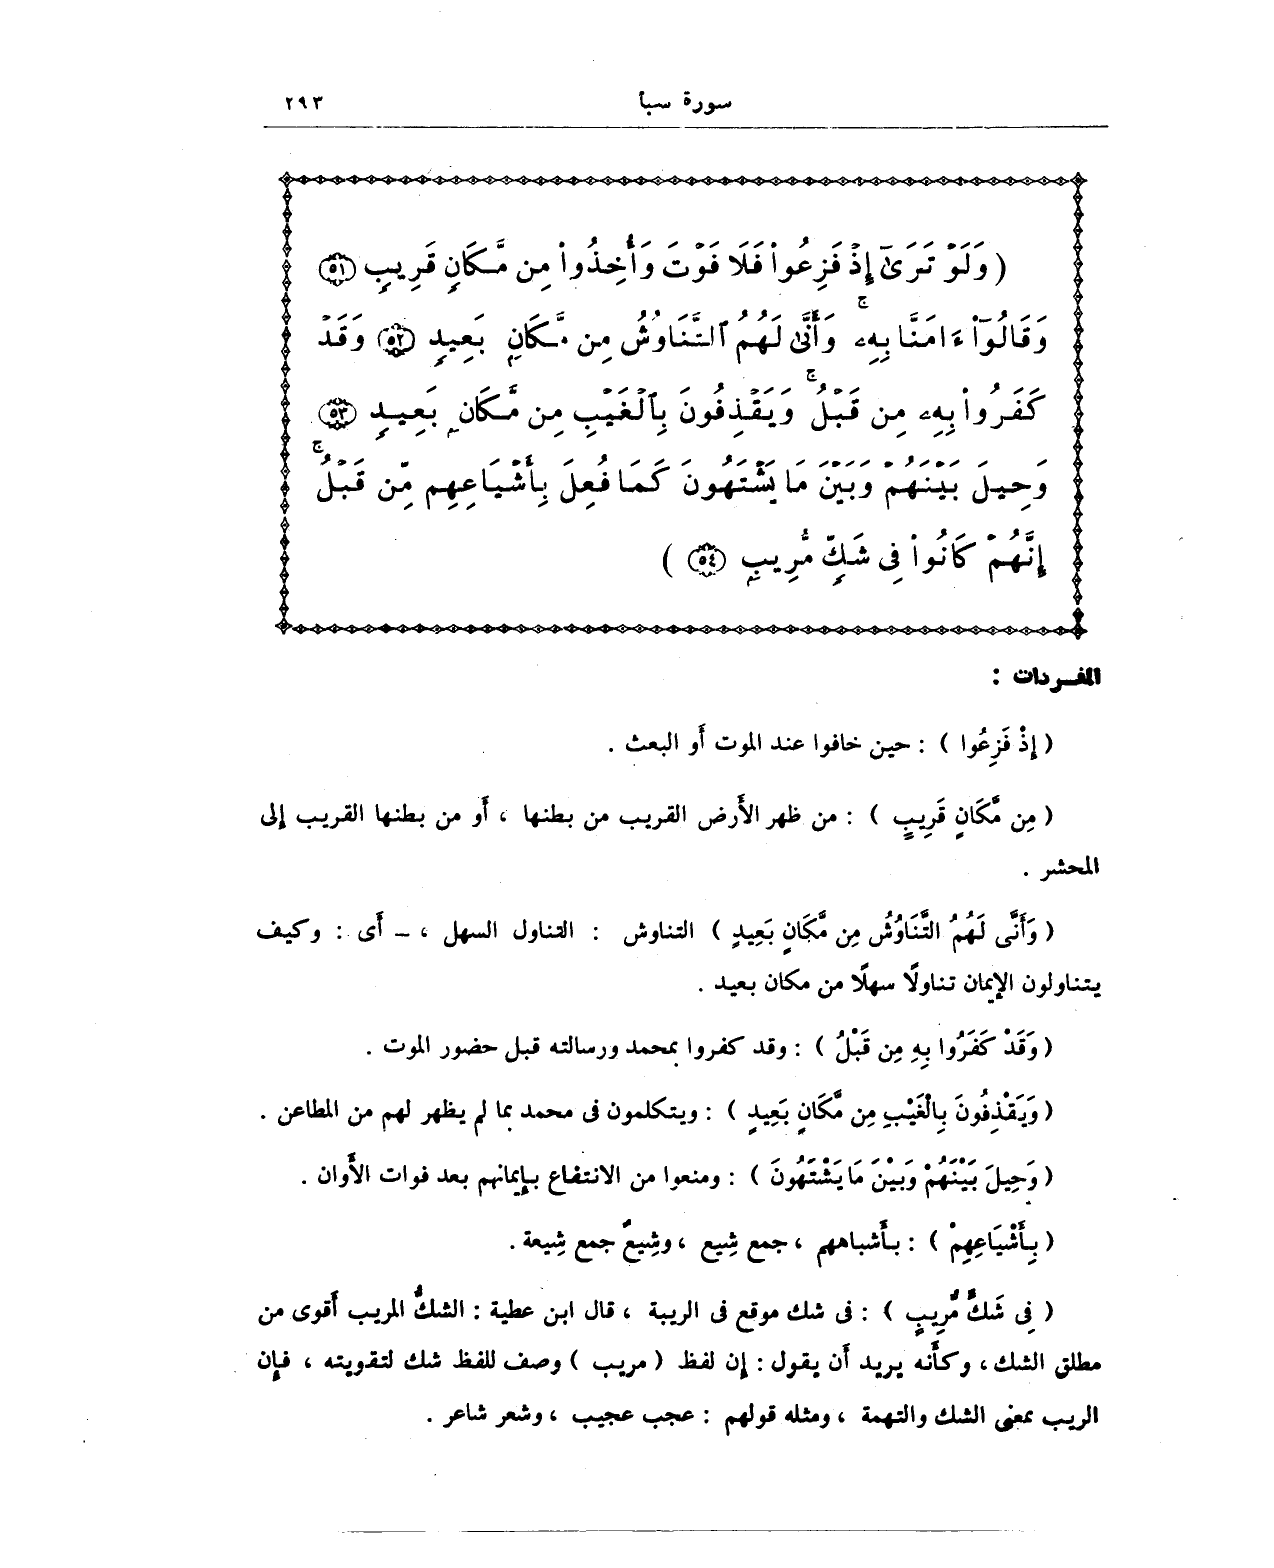 سورة سبأ ٢٩٣
( وَلَوْ تَرَىٰٓ إِذْ فَزِعُوا۟ فَلَا فَوْتَ وَأُخِذُوا۟ مِن مَّكَانٍ قَرِيبٍ ٥١
وَقَالُوٓا۟ ءَامَنَّا بِهِۦ وَأَنَّىٰ لَهُمُ ٱلتَّنَاوُشُ مِن مَّكَانٍ بَعِيدٍ ٥٢ وَقَدْ
كَفَرُوا۟ بِهِۦ مِن قَبْلُ ۚ وَيَقْذِفُونَ بِٱلْغَيْبِ مِن مَّكَانٍ بَعِيدٍ ٥٣
وَحِيلَ بَيْنَهُمْ وَبَيْنَ مَا يَشْتَهُونَ كَمَا فُعِلَ بِأَشْيَاعِهِم مِّن قَبْلُ ۚ
إِنَّهُمْ كَانُوا۟ فِى شَكٍّ مُّرِيبٍ ٥٤ )
المفردات :
( إِذْ فَزِعُوا ) : حين خافوا عند الموت أو البعث .
( مِن مَّكَانٍ قَرِيبٍ ) : من ظهر الأرض القريب من بطنها ، أو من بطنها القريب إلى
المحشر .
( وَأَنَّى لَهُمُ التَّنَاوُشُ مِن مَّكَانٍ بَعِيدٍ ) التناوش : التناول السهل ، ــ أى : وكيف
يتناولون الإيمان تناولًا سهلًا من مكان بعيد .
( وَقَدْ كَفَرُوا بِهِ مِن قَبْلُ ) : وقد كفروا بمحمد ورسالته قبل حضور الموت .
( وَيَقْذِفُونَ بِالْغَيْبِ مِن مَّكَانٍ بَعِيدٍ ) : ويتكلمون فى محمد بما لم يظهر لهم من المطاعن .
( وَحِيلَ بَيْنَهُمْ وَبَيْنَ مَا يَشْتَهُونَ ) : ومنعوا من الانتفاع بإيمانهم بعد فوات الأوان .
( بِأَشْيَاعِهِمْ ) : بأشباههم ، جمع شِيع ، وشِيعٌ جمع شِيعة .
( فِى شَكٍّ مُّرِيبٍ ) : فى شك موقع فى الريبة ، قال ابن عطية : الشكُّ المريب أقوى من
مطلق الشك ، وكأنه يريد أن يقول : إن لفظ ( مريب ) وصف للفظ شك لتقويته ، فإن
الريب بمعنى الشك والتهمة ، ومثله قولهم : عجب عجيب ، وشعر شاعر .